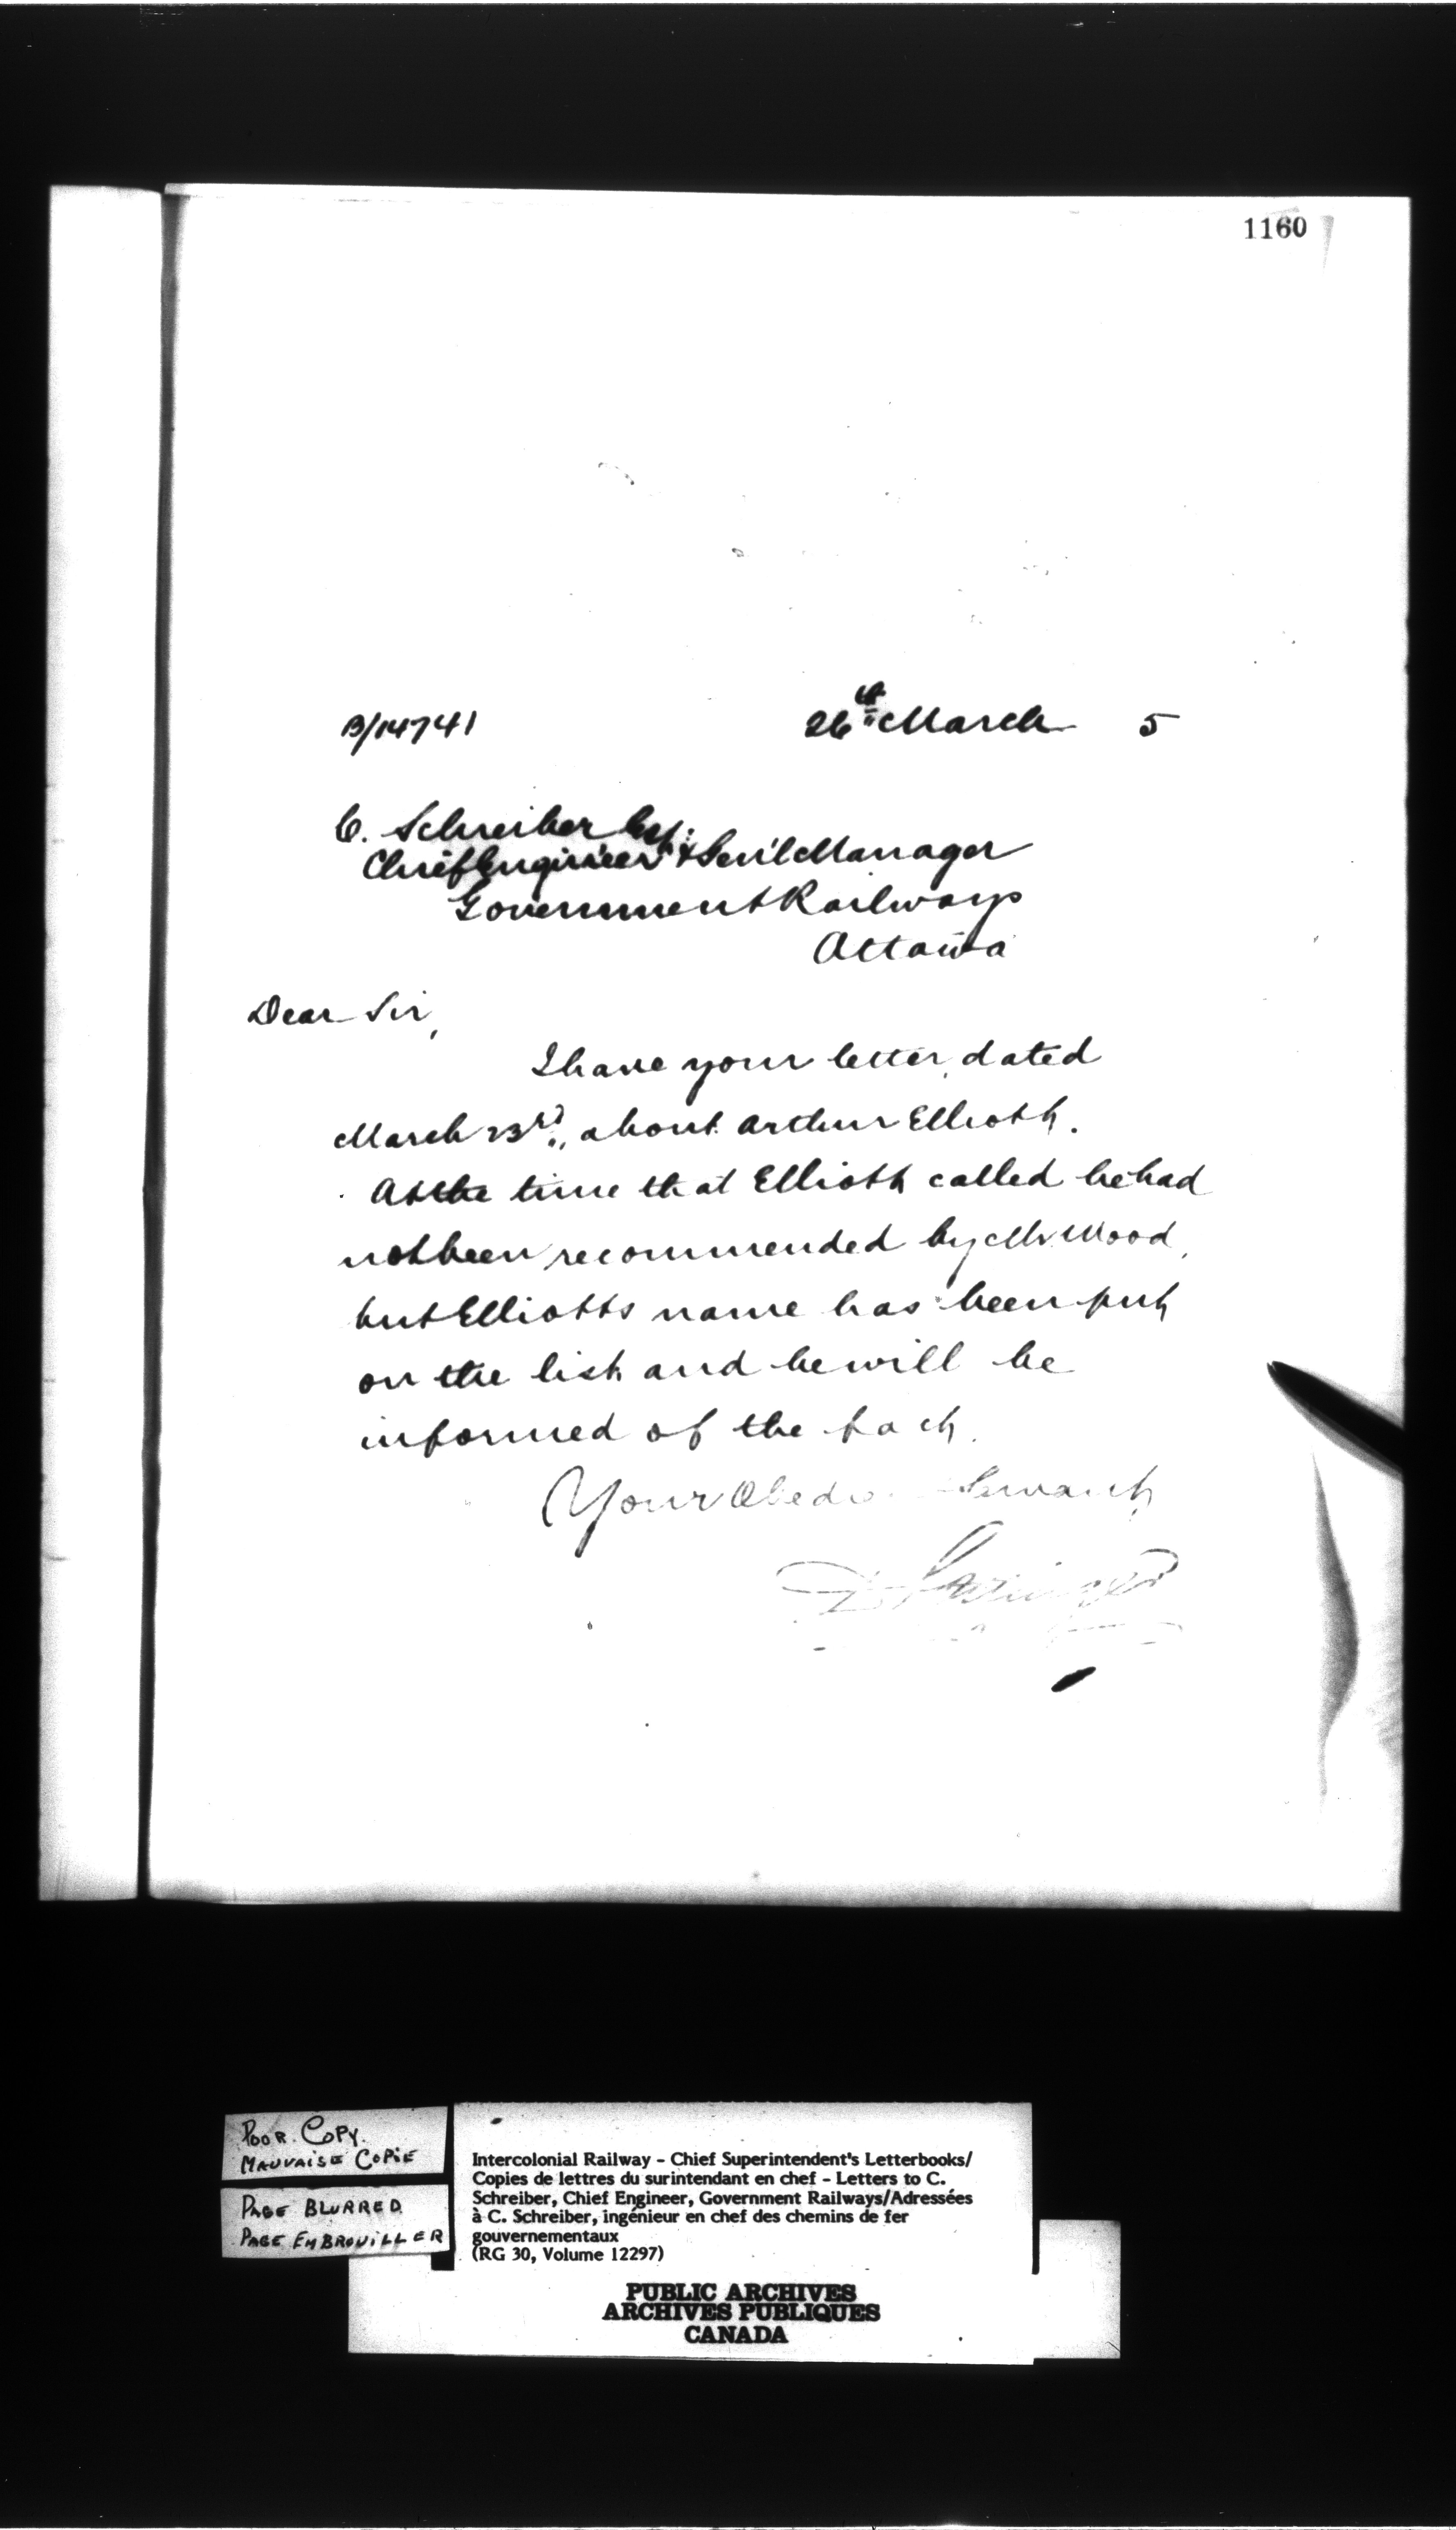 1160
B/14741 26th March 5
C. Schreiber Esq:
Chief Engineer & Gen'l Manager
Government Railways
Ottawa
Dear Sir,
I have your letter, dated
March 23rd, about Arthur Elliott.
At the time that Elliott called he had
not been recommended by Mr Wood,
but Elliotts name has been put
on the list and he will be
informed of the fact.
Your Obedi Servant
D Pottinger
POOR COPY.
MAUVAISE COPIE
PAGE BLURRED
PAGE EMBROUILLER
Intercolonial Railway - Chief Superintendent's Letterbooks/
Copies de lettres du surintendant en chef - Letters to C.
Schreiber, Chief Engineer, Government Railways/Adressées
à C. Schreiber, ingénieur en chef des chemins de fer
gouvernementaux
(RG 30, Volume 12297)
PUBLIC ARCHIVES
ARCHIVES PUBLIQUES
CANADA